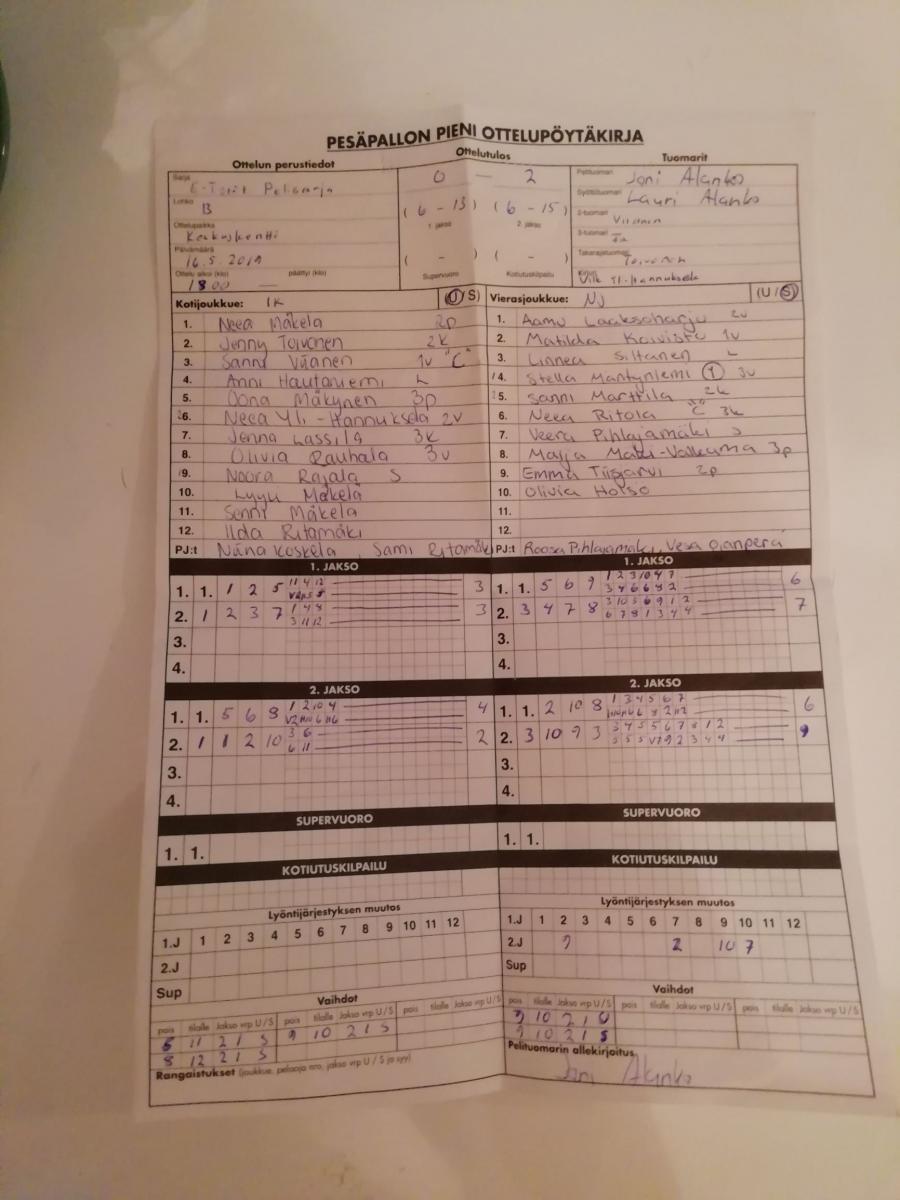 PESÄPALLON PIENI OTTELUPÖYTÄKIRJA
Ottelun perustiedot Ottelutulos Tuomarit
Sarja E-Tytöt
Lohko B
Ottelupaikka Keskuskenttä
Päivämäärä 16.5.2019
Ottelu alkoi (klo) 1800 päättyi (klo) —
0 — 2
(6 - 13) (6 - 15)
1. jakso 2. jakso
( - ) ( - )
Supervuoro Kotiutuskilpailu
Pelituomari Joni Alanko
Syöttötuomari Lauri Alanko
2-tuomari
3-tuomari
Takarajatuomari
Kirjuri Ville Yli-Hannuksela
Kotijoukkue: IK (U/S)
1. Neea Mäkelä 2p
2. Jenny Toivonen 2k
3. Sanni Viianen 1v "C"
4. Anni Hautaniemi L
5. Oona Mäkynen 3p
6. Neea Yli-Hannuksela 2v
7. Jenna Lassila 3k
8. Olivia Rauhala 3v
9. Noora Rajala S
10. Lyyu Mäkelä
11. Senni Mäkelä
12. Ilda Ritamäki
PJ:t Niina Koskela, Sami Ritamäki
Vierasjoukkue: NJ (U/S)
1. Aamu Laaksoharju 2v
2. Matilda Koivisto 1v
3. Linnea Siltanen L
4. Stella Mantyniemi 1 3v
5. Sanni Marttila 2k
6. Neea Ritola "C" 3k
7. Veera Pihlajamäki S
8. Maija Matti-Valkama 3p
9. Emma Tiisjärvi 2p
10. Olivia Hoisö
11.
12.
PJ:t Roosa Pihlajamäki, Vesa Ojanperä
1. JAKSO 1. JAKSO
1. 1. 1 2 5 1 4 12 3
2. 1 2 3 7 1 4 8 3
3 11 12
3.
4.
1. 1. 5 6 9 1 2 3 10 4 7 6
3 4 6 6 8 2
2. 3 4 7 8 3 10 5 6 9 1 2 7
6 7 8 1 3 4 4
3.
4.
2. JAKSO 2. JAKSO
1. 1. 5 6 8 1 2 10 4 4
2. 1 1 2 10 3 6 2
6 11
3.
4.
1. 1. 2 10 8 1 3 4 5 6 7 6
2. 3 10 9 3 3 4 5 5 6 7 8 1 2 9
5 5 5 V7 9 2 3 4 4
3.
4.
SUPERVUORO SUPERVUORO
1. 1. 1. 1.
KOTIUTUSKILPAILU KOTIUTUSKILPAILU
Lyöntijärjestyksen muutos
1.J 1 2 3 4 5 6 7 8 9 10 11 12
2.J
Sup
Lyöntijärjestyksen muutos
1.J 1 2 3 4 5 6 7 8 9 10 11 12
2.J 9 2 10 7
Sup
Vaihdot
pois tilalle Jakso vrp U/S pois tilalle Jakso vrp U/S pois tilalle Jakso vrp U/S
6 11 2 1 S 9 10 2 1 S
8 12 2 1 S
Vaihdot
pois tilalle Jakso vrp U/S pois tilalle Jakso vrp U/S pois tilalle Jakso vrp U/S
9 10 2 1 U
9 10 2 1 S
Rangaistukset (joukkue, pelaaja nro, jakso vrp U/S ja syy)
Pelituomarin allekirjoitus
Joni Alanko